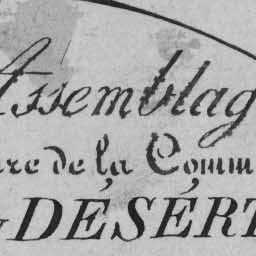 Assemblag
re de la Comm
DÉSERT